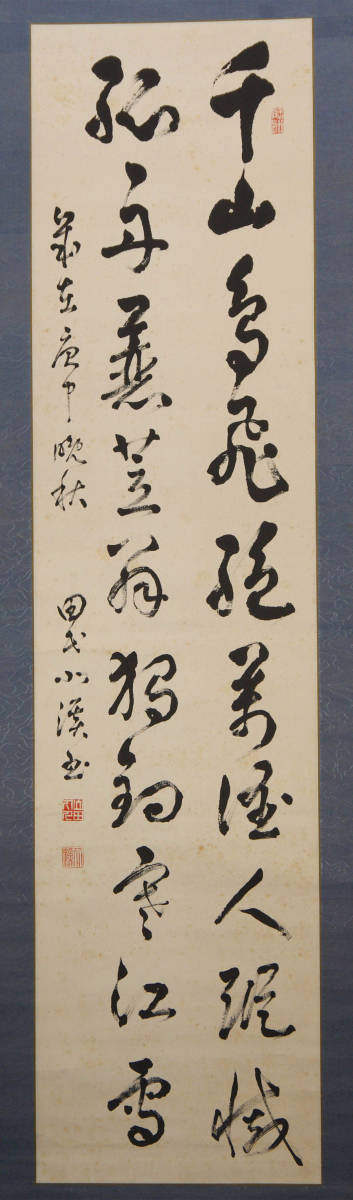 千山鳥飛絶萬徑人蹤滅
孤舟蓑笠翁獨釣寒江雪
歳在庚申晩秋 田 小溪書